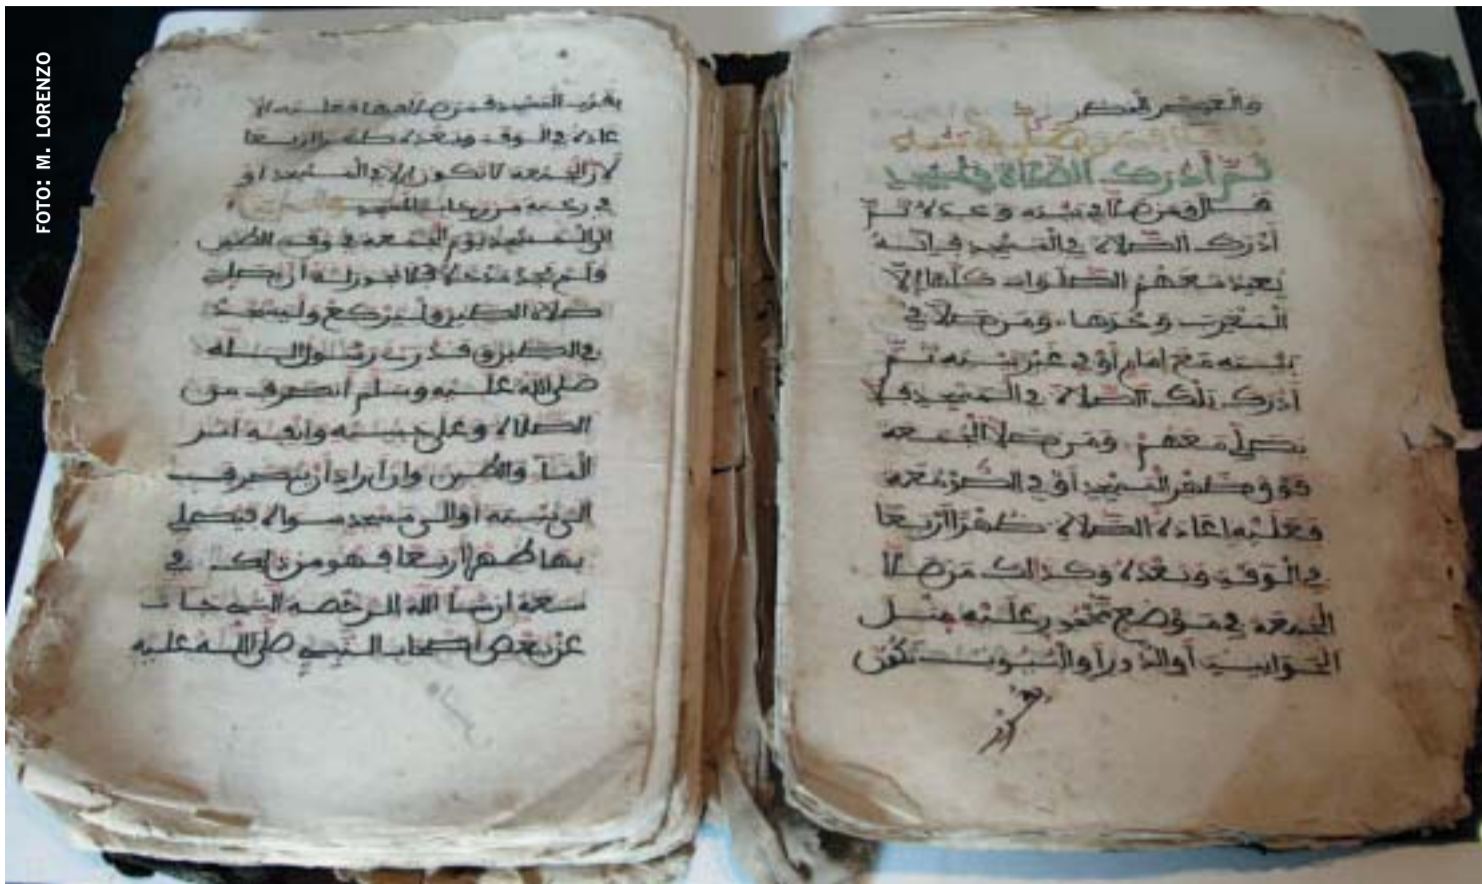 FOTO: M. LORENZO
والعصر
ثم أدرك الصلاة في المسجد
قال ومن صلا في بيته وحده ثم
أدرك الصلاة في المسجد فإنه
يعيد معهم الصلوات كلها إلا
المغرب وحدها ومن صلا في
بيته مع إمام أو في غير بيته ثم
أدرك تلك الصلاة في المسجد فلا
يصل معهم ومن صلا الجمعة
فوق ظهر المسجد أو في الصومعة
فعليه إعادة الصلاة ظهرا أربعا
في الوقت وبعده وكذلك من صلا
الجمعة في موضع تحجر عليه مثل
الحوانيت أو الدور أو البيوت تكون
بقرب
بقرب المسجد فمن صلاها فعليه الا
عادة في الوقت وبعده ظهرا أربعا
لأن الجمعة لا تكون إلا في المسجد أو
في رحبة من رحاب المسجد
الى المسجد يوم الجمعة في وقت الطين
فلم يجد مدخلا فما يجوز له أن يصلي
صلاة الطين وليركع وليسجد
في الطين وقد رئ رسول الله
صلى الله عليه وسلم انصرف من
الصلاة وعلى جبينه وانفه اثر
الماء والطين وان أراد أن ينصرف
الى بيته أو الى مسجد سواه فيصلي
بها ظهرا أربعا فهو من ذلك في
سعة ان شاء الله للرخصة التي جات
عن بعض أصحاب النبي صلى الله عليه